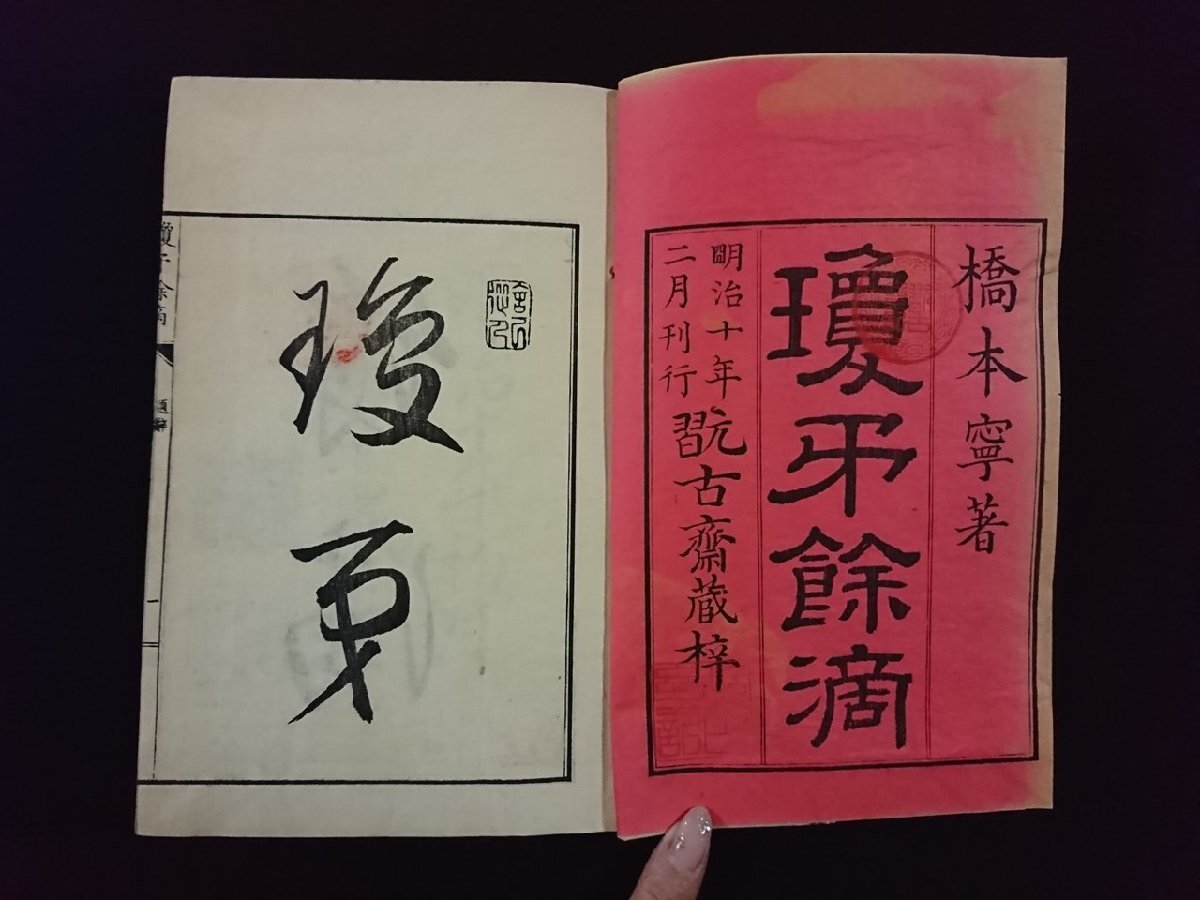 橋本寧著
瓊矛餘滴
明治十年
二月刊行
翫古齋蔵梓
瓊矛